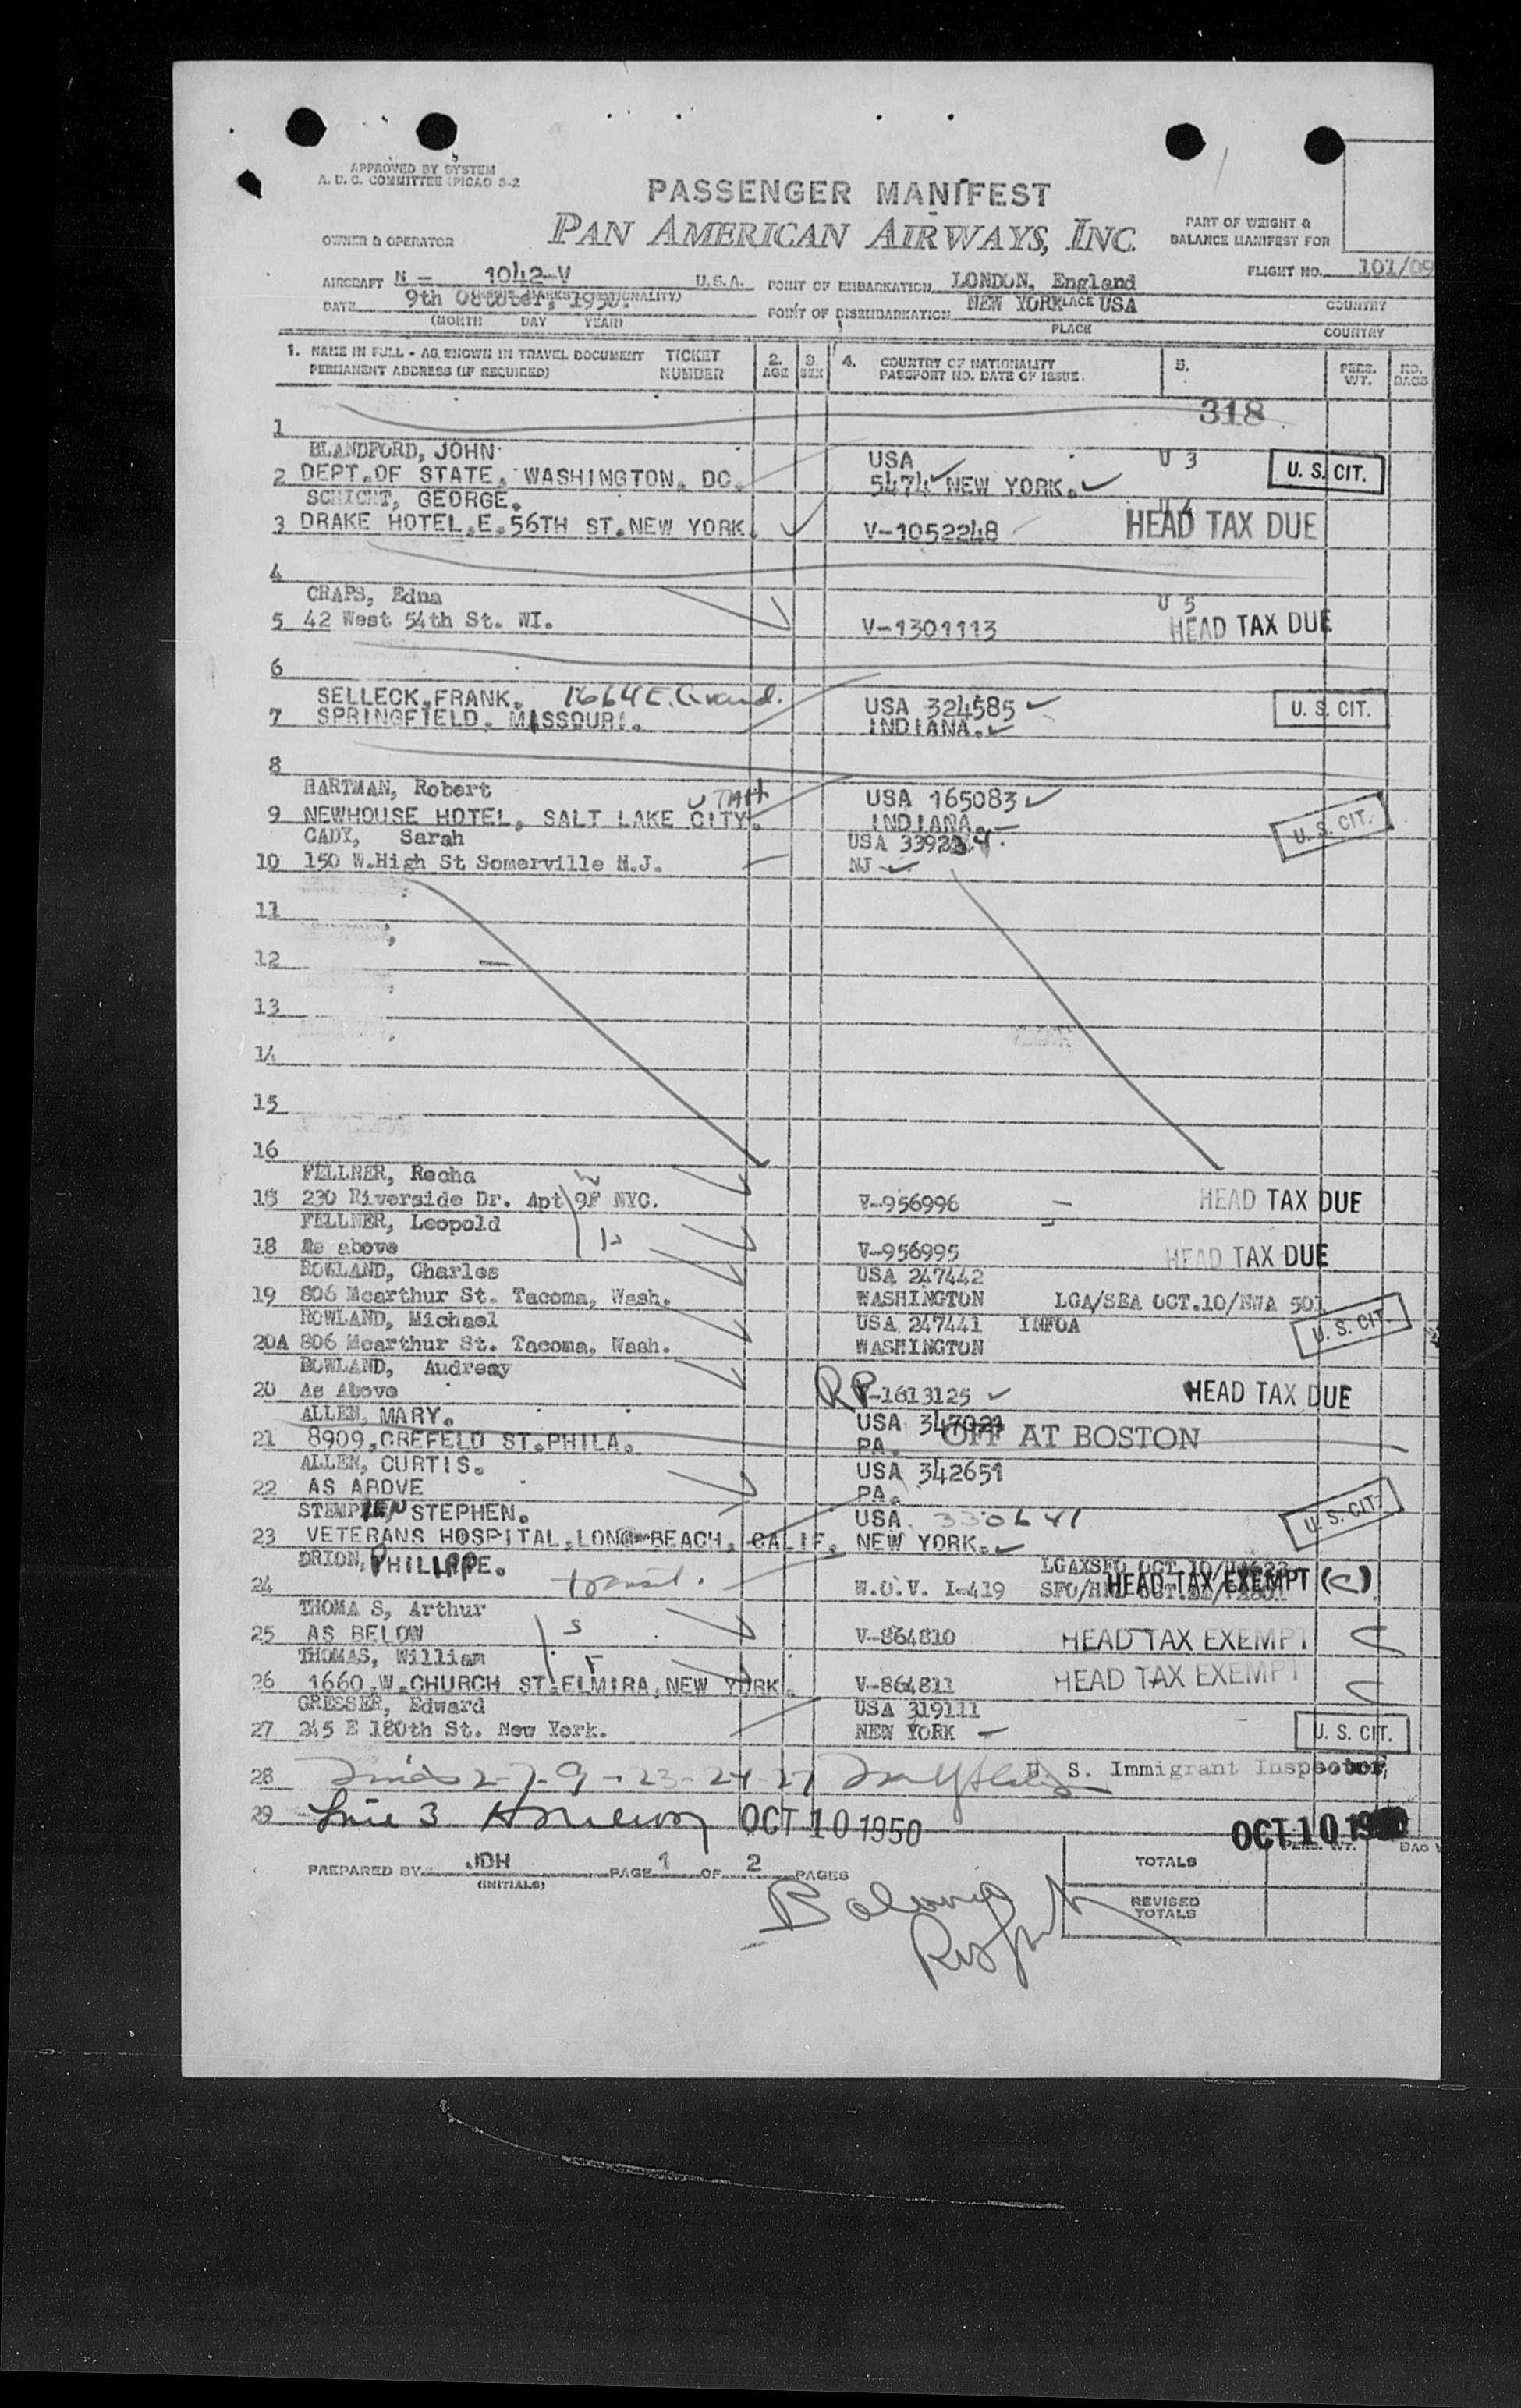 APPROVED BY SYSTEM
A. D. C. COMMITTEE (PICAO S-2
PASSENGER MANIFEST
OWNER & OPERATOR PAN AMERICAN AIRWAYS, INC. PART OF WEIGHT & BALANCE MANIFEST FOR
AIRCRAFT N - 1042-V U.S.A. POINT OF EMBARKATION LONDON, England FLIGHT NO. 101/09
DATE 9th October, 1950. POINT OF DISEMBARKATION NEW YORK USA COUNTRY
(MONTH DAY YEAR) PLACE COUNTRY
1. NAME IN FULL - AS SHOWN IN TRAVEL DOCUMENT TICKET 2. 3. 4. COUNTRY OF NATIONALITY 5. PERS. NO.
PERMANENT ADDRESS (IF REQUIRED) NUMBER AGE SEX PASSPORT NO. DATE OF ISSUE. WT. BAGS
318
1
BLANDFORD, JOHN USA U 3
2 DEPT.OF STATE. WASHINGTON. DC. 5474 NEW YORK. U. S. CIT.
SCHICHT, GEORGE.
3 DRAKE HOTEL.E.56TH ST.NEW YORK. V-1052248 HEAD TAX DUE
4
CRAPS, Edna U 5
5 42 West 54th St. WI. V-1301113 HEAD TAX DUE
6
SELLECK.FRANK. 1664 E. Grand. USA 324585
7 SPRINGFIELD. MISSOURI. INDIANA. U. S. CIT.
8
HARTMAN, Robert UTAH USA 165083
9 NEWHOUSE HOTEL, SALT LAKE CITY. INDIANA. U. S. CIT.
CADY, Sarah USA
10 150 W.High St Somerville N.J. NJ
11
12
13
14
15
16
FELLNER, Recha
230 Riverside Dr. Apt 9F NYC. V-956996 HEAD TAX DUE
FELLNER, Leopold
18 As above V-956995 HEAD TAX DUE
ROWLAND, Charles USA 247442
19 806 Mcarthur St. Tacoma, Wash. WASHINGTON LGA/SEA OCT.10/NWA 501
ROWLAND, Michael USA 247441 INFOA
20A 806 Mcarthur St. Tacoma, Wash. WASHINGTON U. S. CIT.
ROWLAND, Audreay
20 As Above RP V-1613125 HEAD TAX DUE
ALLEN, MARY. USA 347021
21 8909.CREFELD ST.PHILA. PA. OFF AT BOSTON
ALLEN, CURTIS. USA 342651
22 AS ABOVE PA.
STEMPIEN STEPHEN. USA 330641 U. S. CIT.
23 VETERANS HOSPITAL.LONG-BEACH. CALIF. NEW YORK.
DRION, PHILIPPE.
24 transit. W.O.V. I-419 HEAD TAX EXEMPT (C)
THOMAS, Arthur S
25 AS BELOW V-864810 HEAD TAX EXEMPT C
THOMAS, William F
26 1660.W.CHURCH ST.ELMIRA,NEW YORK. V-864811 HEAD TAX EXEMPT C
GRESSER, Edward USA 319111
27 245 E 180th St. New York. NEW YORK U. S. CIT.
28 Lines 2-7-9-23-24-27 U. S. Immigrant Inspector
29 Line 3 OCT 10 1950 OCT 10 1950
PREPARED BY JDH PAGE 1 OF 2 PAGES TOTALS
(INITIALS)
Balance REVISED
TOTALS